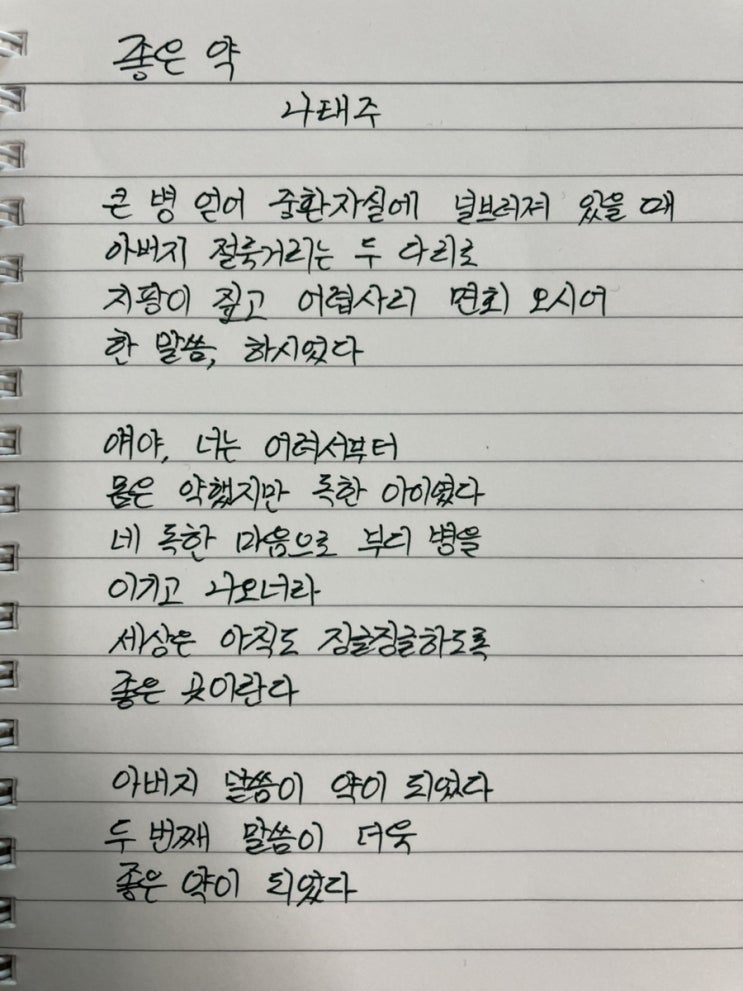 좋은 약
나태주
큰 병 얻어 중환자실에 널브러져 있을 때
아버지 절룩거리는 두 다리로
지팡이 짚고 어렵사리 면회 오시어
한 말씀, 하시었다
얘야, 너는 어려서부터
몸은 약했지만 독한 아이였다
네 독한 마음으로 부디 병을
이기고 나오너라
세상은 아직도 징글징글하도록
좋은 곳이란다
아버지 말씀이 약이 되었다
두 번째 말씀이 더욱
좋은 약이 되었다